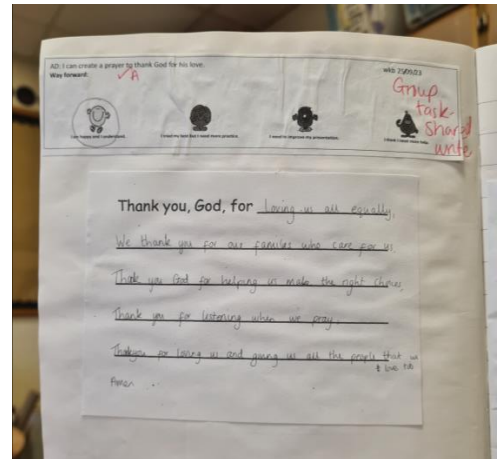 AD: I can create a prayer to thank God for his love.
Way forward:
✓A
wkb 25/09/23
Group
task-
Shared
write
I am happy and I understand.
I tried my best but I need more practice.
I need to improve my presentation.
I think I need more help.
Thank you, God, for loving us all equally,
We thank you for our families who care for us.
Thank you God for helping us make the right choices,
Thank you for listening when we pray.
Thankyou for loving us and giving us all the people that we
love too
Amen